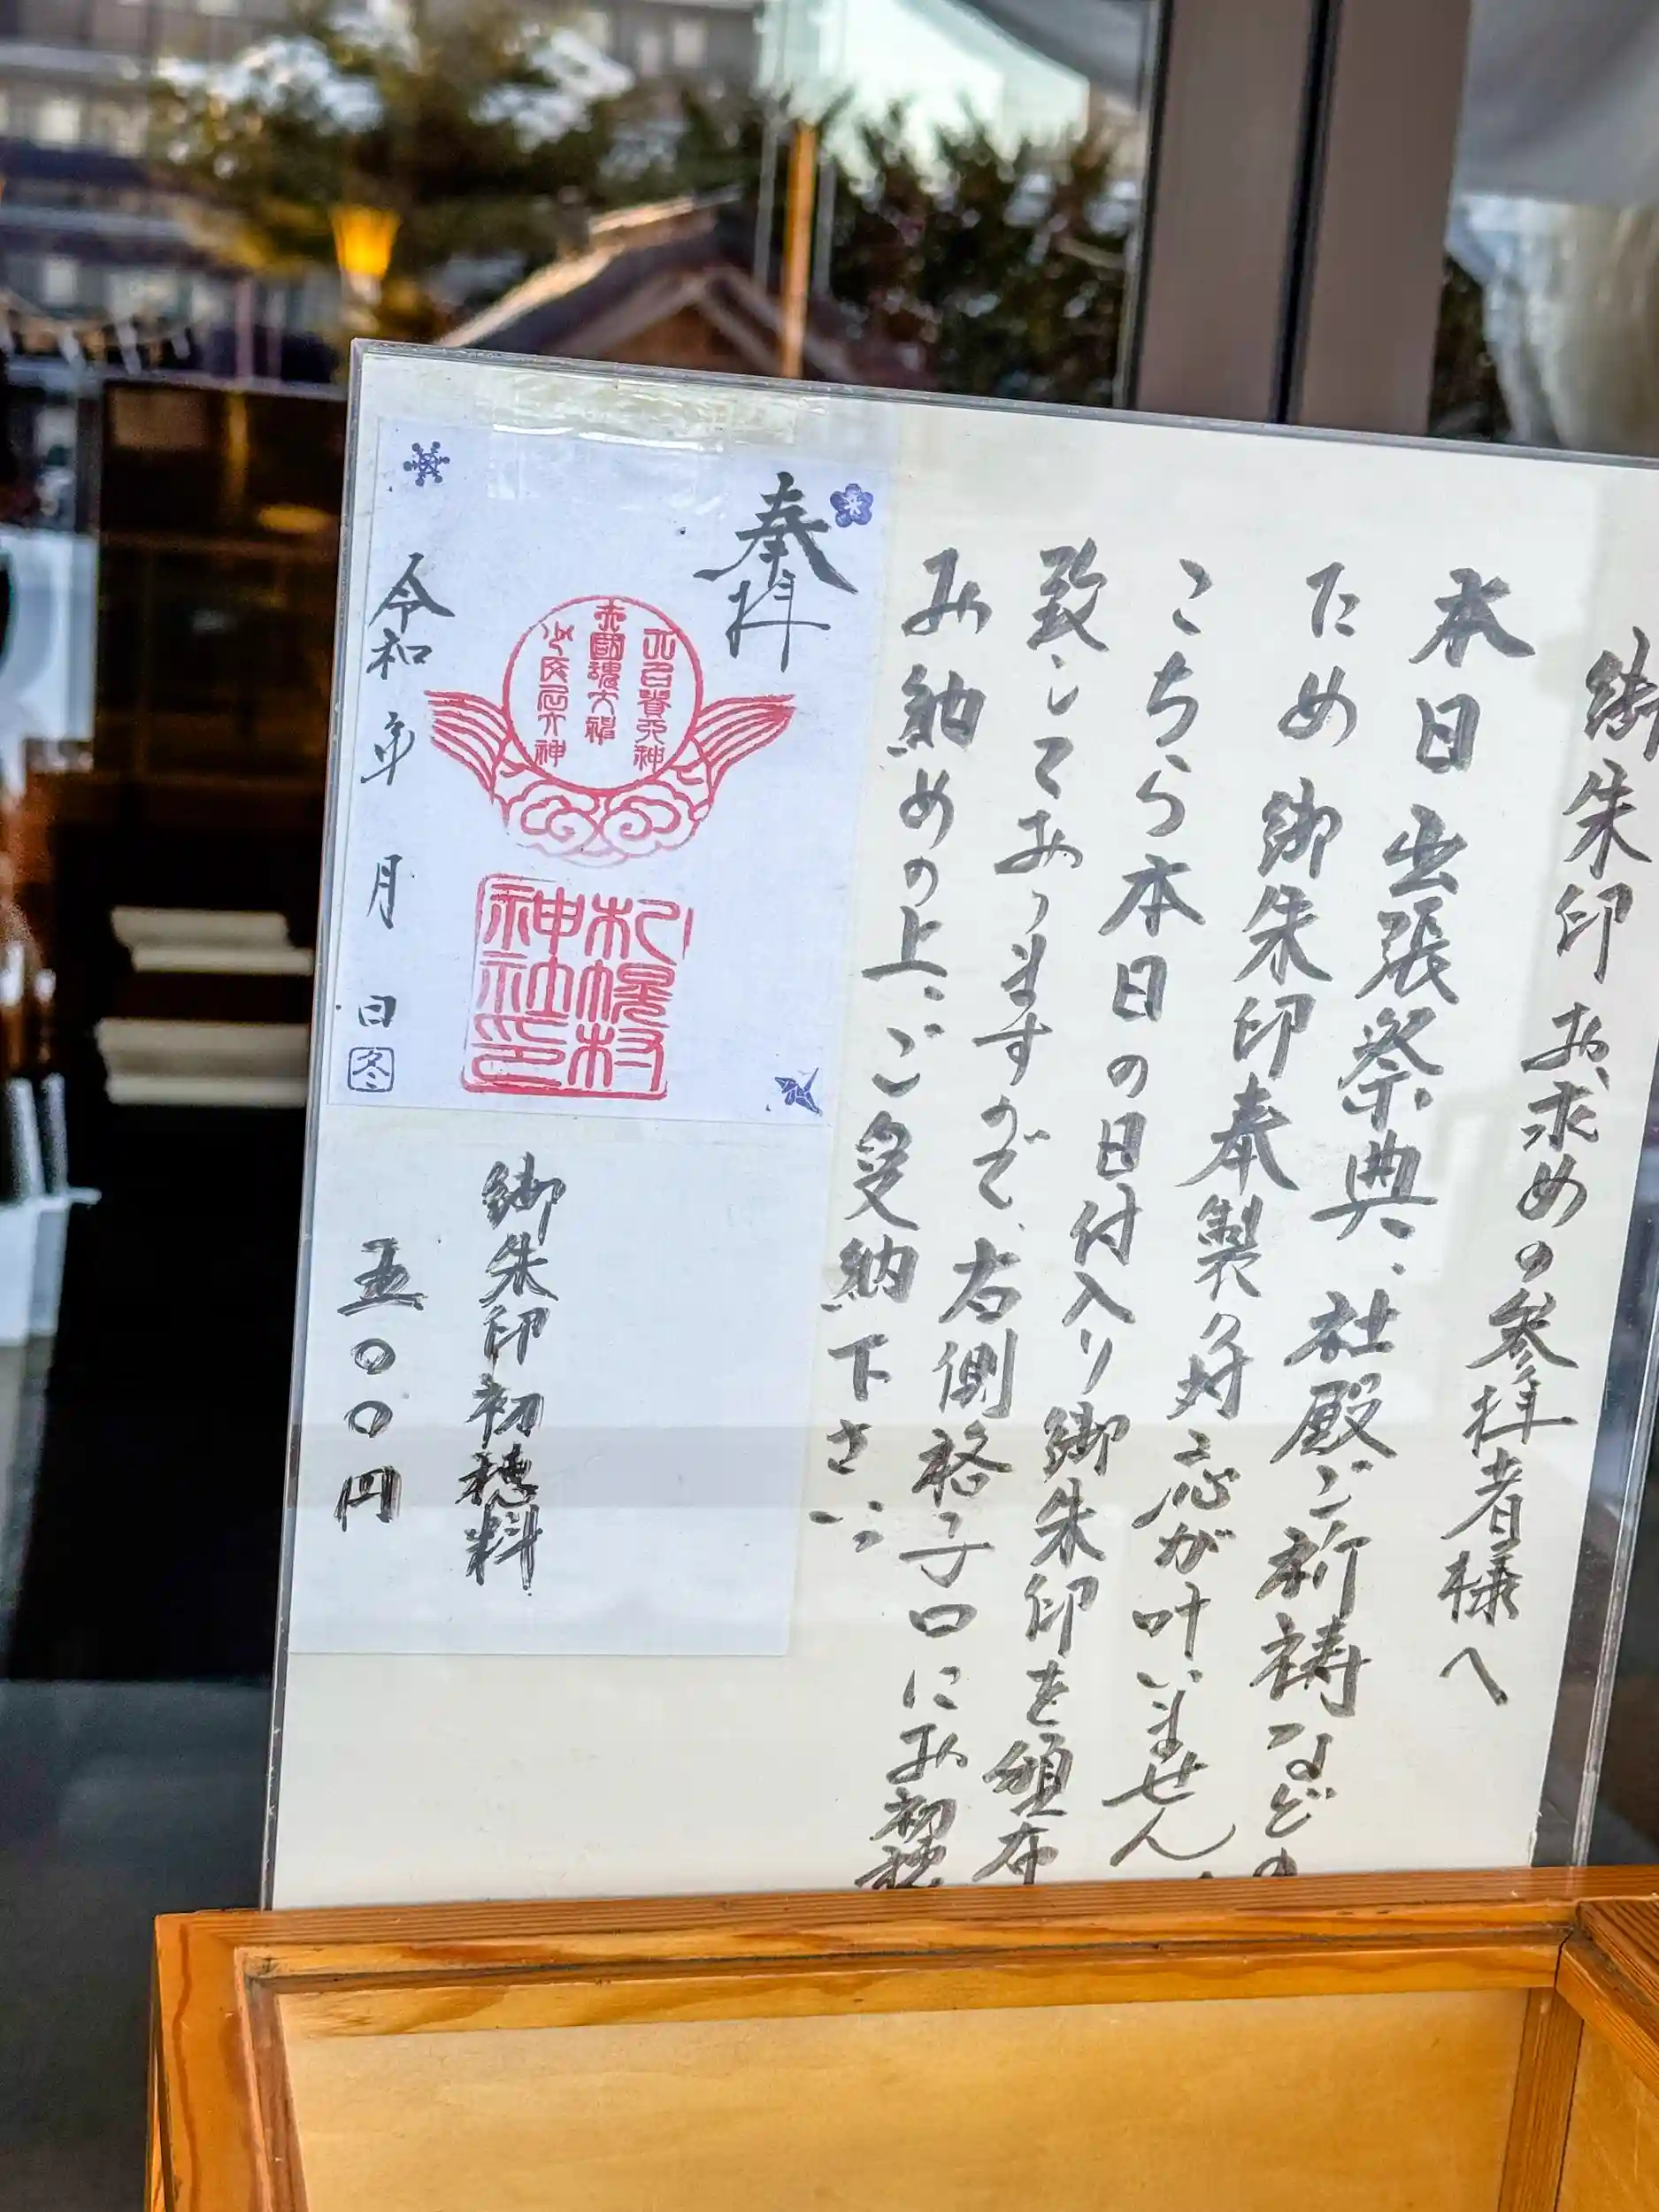 御朱印お求めの参拝者様へ
本日出張祭典、社殿ご祈祷などの
ため御朱印奉製対応が叶いません
こちら本日の日付入り御朱印を頒布
致しておりますので、右側格子口にお初穂
お納めの上、ご受納下さい
奉拝
大國魂大神
大名貴大神
少彦名大神
札幌村
神社印
令和 年 月 日
冬
御朱印初穂料
五〇〇円